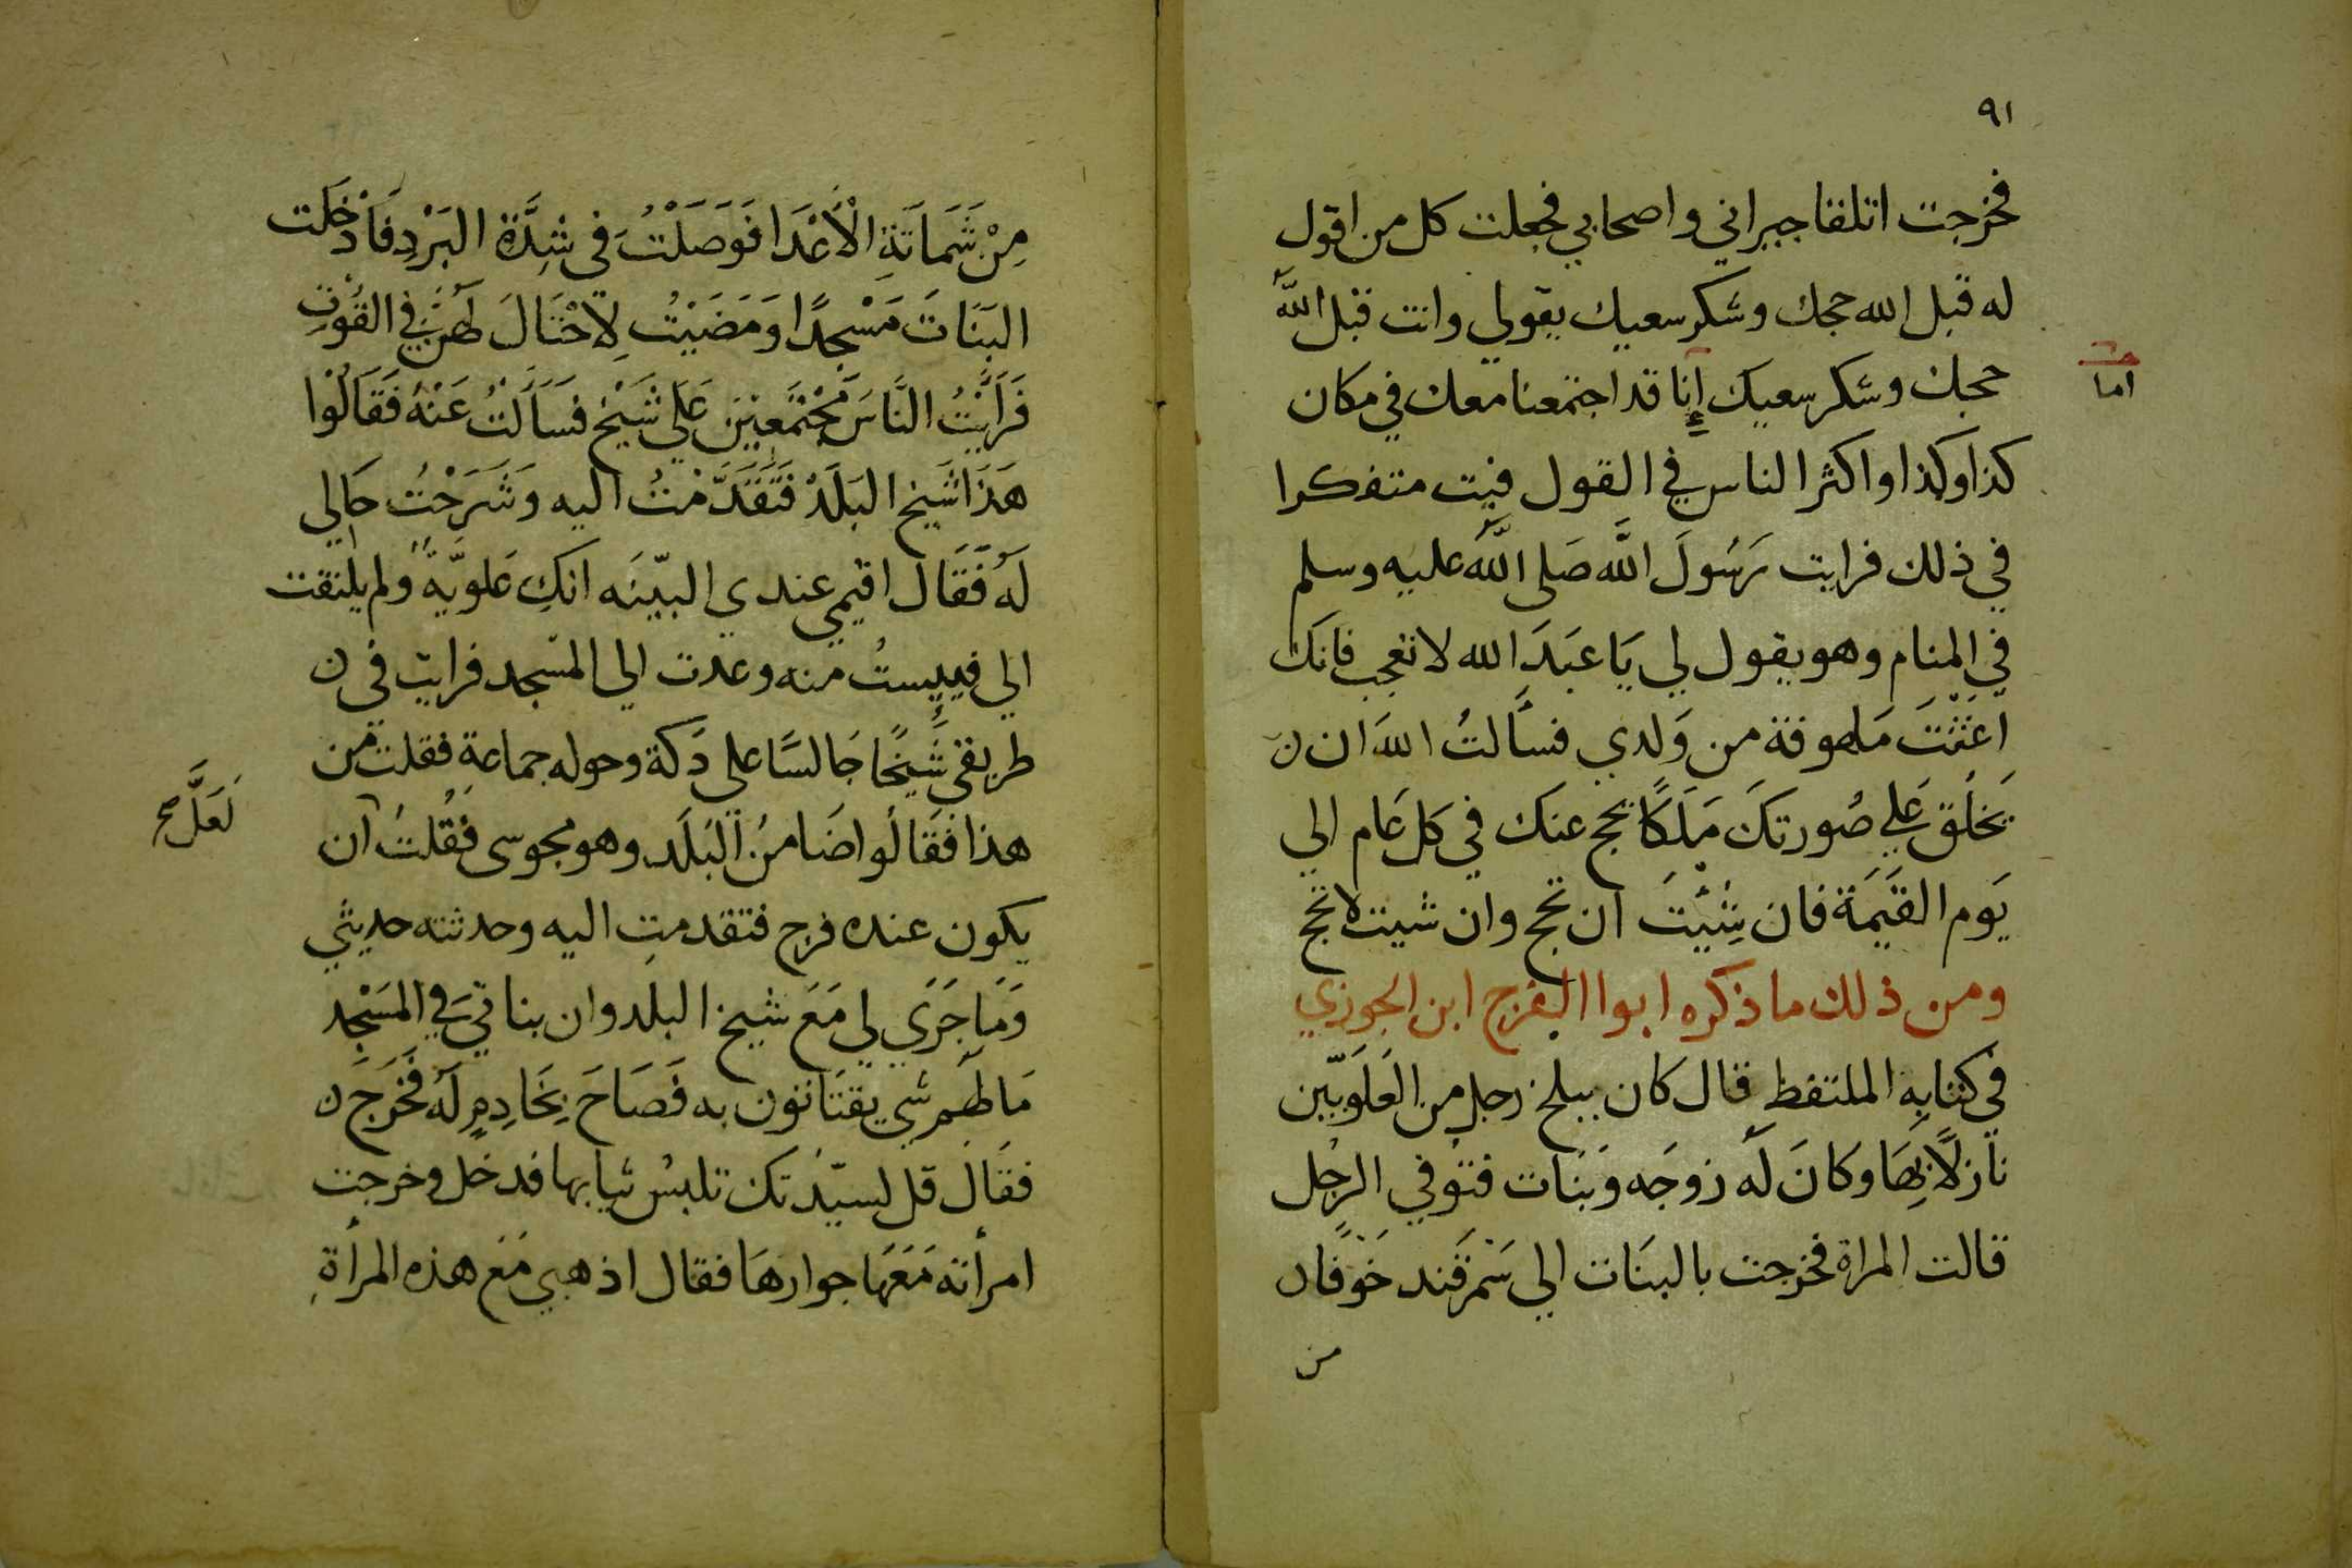 ٩١
فخرجت اتلقا جيراني واصحابي فجعلت كل من اقول
له قبل الله حجك وشكر سعيك يقولي وانت قبل الله
حجك وشكر سعيك إنا قد اجتمعنا معك في مكان
اما
كذا وكذا واكثر الناس في القول فبت متفكرا
في ذلك فرايت رَسُولَ اللَّه صَلى اللَّه عليه وسلم
في المنام وهو يقول لي يَا عَبدَ الله لا تعجب فانكَ
اغَثْتَ مَلهوفة من وَلدي فسَألتُ اللهَ ان
يَخلق عَلي صُورتكَ مَلَكًا يحج عنكَ في كل عَام الي
يَوم القيَمَة فان شِئيتَ ان تحج وان شيت لا تحج
ومن ذلك ما ذكره ابوا الفرج ابن الجوزي
في كتابِه الملتقط قال كان ببلخ رجل من العَلَويّين
نَازلًا بِهَا وكانَ لَه زوجَه وَبَنات فتوفي الرجُل
قالت المراة فخرجت بالبنَات الي سَمَرقند خَوفًا
من
مِنْ شَمَاتَةِ الْأَعْدَا فَوَصَلْتُ في شِدَّة البَرْدِ فَأدْخَلت
البَنَاتَ مَسْجِدًا وَمَضَيْتُ لِاحْتَالَ لَهُنَّ في القُوتِ
فَرَايْتُ النَّاسَ مُجْتَمَعِيْنَ عَلَي شَيْخ فسَألتُ عَنْهُ فَقَالُوا
هَذَا شَيخ البَلَد فَتَقَدَّمْتُ اليه وَشَرَحْتُ حَالي
لَهُ فَقَالَ اقيمي عندي البيّنَه انكِ عَلويَّة ولم يلتفت
الي فييستُ منه وعدت الي المسجد فرايت في
طريقي شَيخًا جَالسًا على دَكة وحوله جماعةِ فقلت من
هذا فقَالُوا ضَامنُ البَلَد وهو مجوسى فقُلتُ ان
لَعَلَّ صح
يكون عنده فرج فتقدمتِ اليه وحدثته حديثي
وَمَا جَرَي لي مَعَ شيخ البلد وان بناتي في المَسْجد
مَا لهم شي يقتَاتون به فَصَاحَ بِخَادِمٍ لَه فَخَرَجَ
فقَالَ قل لسيّدَتكَ تلبسُ ثيابها فدخل وخرجت
امرأته مَعَهَا جوارهَا فقال اذهبي مَعَ هذه المرأةِ